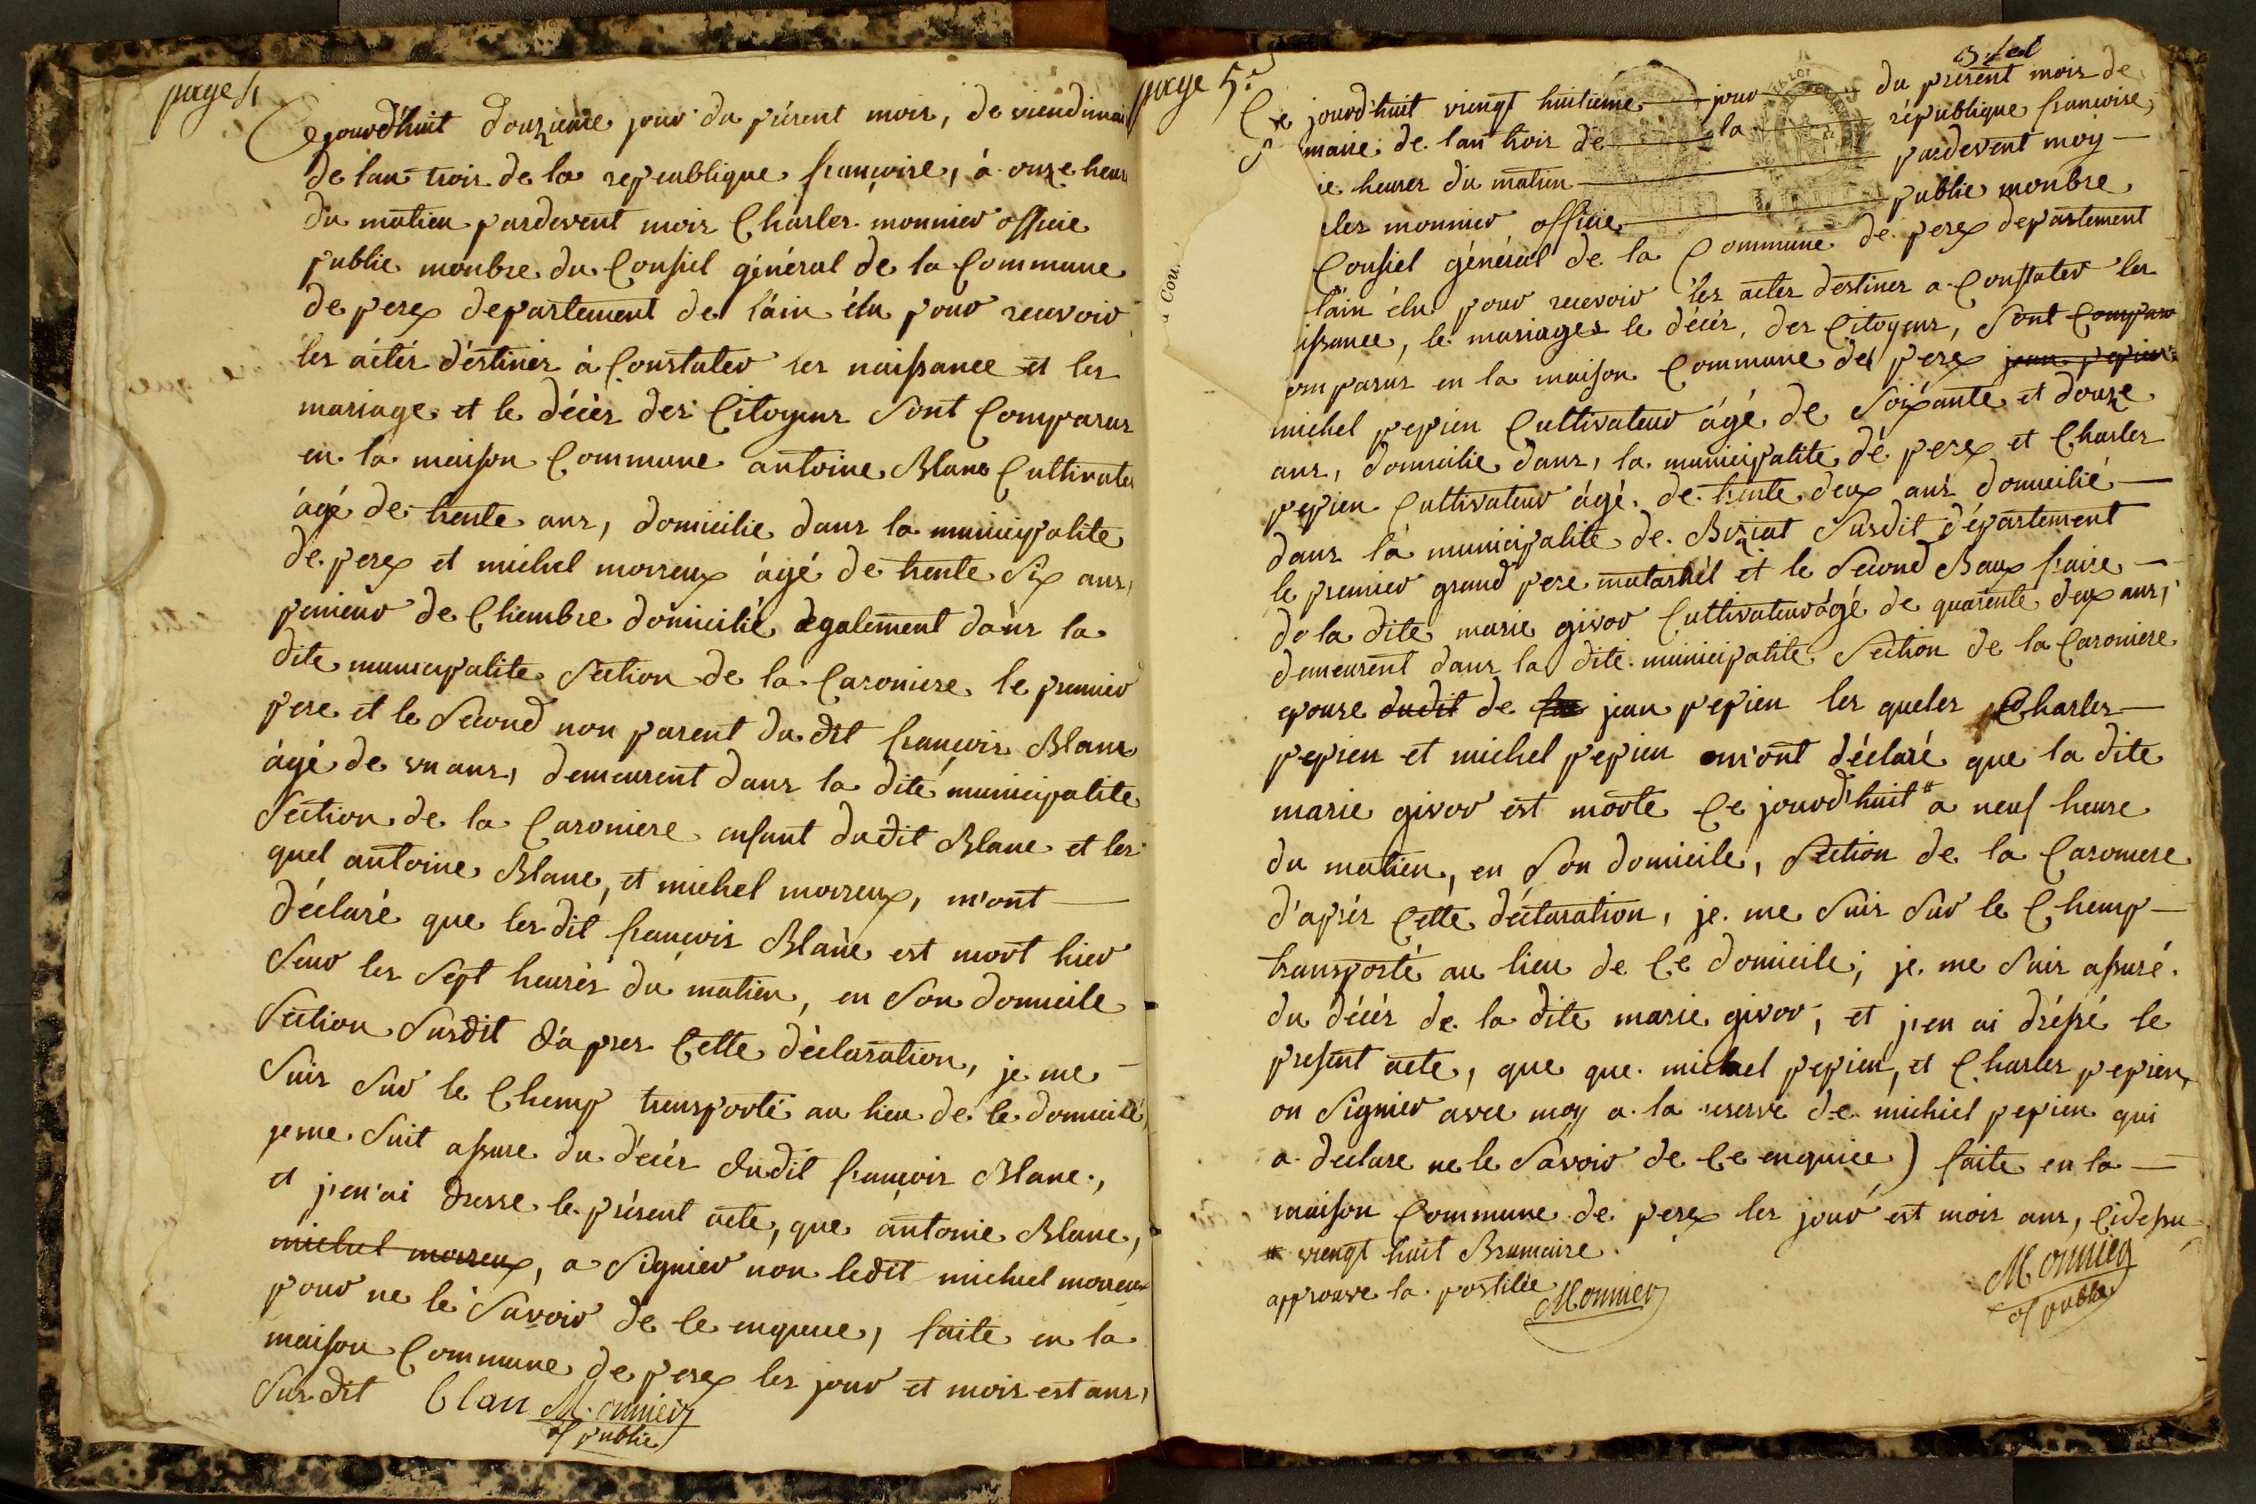 page 4
Cejourd'huit douzieme jour du présent mois, de viendimai
de lan trois de la republique françoise, à onze heur
du matien pardevent mois Charles monnier officie
publie monbre du Consiel général de la Commune
de perex departement de l'ain élu pour recevoir
les actes déstinés à Constater les naissance et les
mariage et le décès des Citoyens Sont Comparus
en la maison Commune antoine Blanc Cultivate
âgé de trente ans, domicilie dans la municipalite
de perex et michel morreux âgé de trente Six ans,
penieur de Chembre domicilié également dans la
dite municipalite Section de la Caroniere le premier
pere et le Second non parent du dit françois Blanc
âgé de un ans, demeurent dans la dité municipalite
Section de la Caroniere enfant dudit Blanc et les
quel antoine Blanc, et michel morreux, m'ont —
déclaré que lesdit françois Blanc est mort hier
Seur les Sept heurès du matien, en Son domicile
Section Susdit d'après Cette déclaration, je me —
Suis Sur le Chemp transporté au lieu de Ce domicile,
je me Suit assure du décès dudit françois Blanc,
et j'en ai dresse le présent acte, que antonie Blanc,
michel morreux, a Signier non ledit michiel morreux
pour ne le Savoir de Ce enquiie, faite en la
maison Commune de perex les jour et mois est ans,
Susdit blan Monnier
of publie
page 5e
Ce jourd'huit viengt huitieme — jour — du présent mois de
maire de lan trois de — la — république françoise,
ie heures du matien — pardevent moy —
les monnier officie — publie monbre
Consiel général de la Commune de perex departement
l'ain élu pour recevoir les actes déstines a Constater les
issance, le mariages le décès, des Citoyens, Sont Comparu
omparus en la maison Commune de perex jean pepien
michel pepien Cultivateur âgé de Soixante et douze
ans, domicilie dans, la municipalite de perex et Charles
pepien Cultivateur âgé de trente deux ans domicilié —
dans la municipalité de Biziat Susdit département
le premier grand pere maternel et le Second Baux fraire —
de la dite marie givor Cultivateur âgé de quarente deux ans,
demeurent dans la dité municipalité Section de la Caroniere
epouse dudit de feu jean pepien les queles Charles —
pepien et michel pepien m'ont déclaré que la dite
marie givor est morte Ce jourd'huit # a neuf heure
du matien, en Son domicile, Section de la Caroniere
d'après Cette déclaration, je me Suis Sur le Chemp —
transporté au lieu de Ce domicile; je me Suis assuré
du décès de la dite marie givor, et j'en ai dréssé le
present acte, que que michel pepien, et Charles pepien,
on Signier avec moy a la reserve de michiel pepien qui
a declare ne le Savoir de Ce enquiee) faite en la —
maison Commune de perex les jour est mois ans, Cidessu
# viengt huit Brumaire
approuve la postilie Monnier
Monnier
of publie